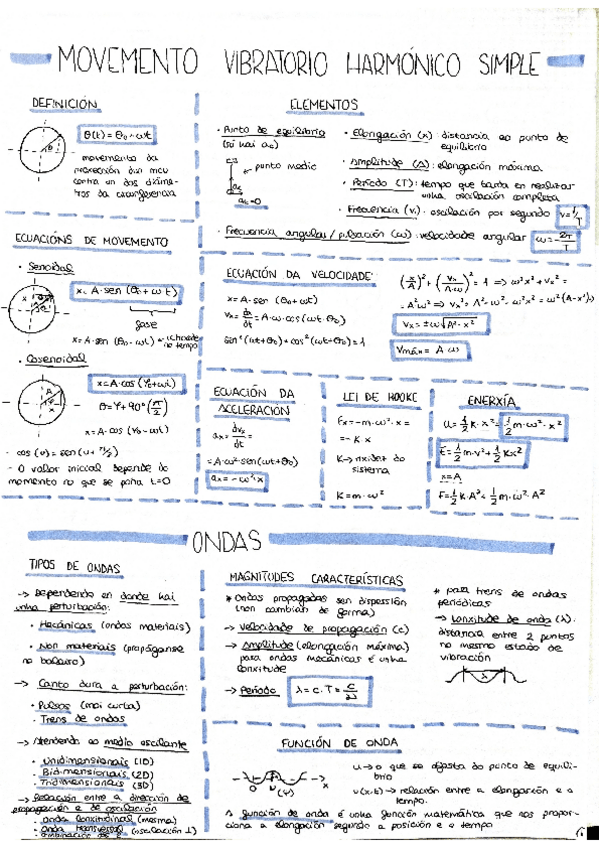 MOVEMENTO VIBRATORIO HARMÓNICO SIMPLE
DEFINICIÓN
θ(t) = θ₀ + ωt
movemento da
proxección dun mcu
contra un dos diáme-
tros da circunferencia
ELEMENTOS
· Punto de equilibrio
(só hai ac)
punto medio
ac=0
· Elongación (x): distancia ao punto de
equilibrio
· Amplitude (A): elongación máxima
· Período (T): tempo que tarda en realizar
unha oscilación completa
· Frecuencia (ν): oscilación por segundo
· Frecuencia angular/pulsación (ω): velocidade angular ω = 2π/T
ECUACIÓNS DE MOVEMENTO
· Senoidal
x = A·sen (θ₀ + ωt)
fase
x = A·sen (θ₀ - ωt)
no tempo
· Cosenoidal
x = A·cos (φ₀ + ωt)
θ = φ + 90° (π/2)
x = A·cos (φ₀ - ωt)
- cos (α) = sen (α + π/2)
- O valor inicial depende do
momento no que se poña t=0
ECUACIÓN DA VELOCIDADE
x = A·sen (θ₀ + ωt)
vx = dx/dt = A·ω·cos (ωt + θ₀)
sen² (ωt + θ₀) + cos² (ωt + θ₀) = 1
(x/A)² + (vx/A·ω)² = 1 ⇒ ω²x² + vx² =
= A²ω² ⇒ vx² = A²·ω² - ω²x² = ω² (A²-x²)
vx = ±ω√A²-x²
Vmáx = A·ω
ECUACIÓN DA
ACELERACIÓN
ax = dvx/dt =
= -A·ω²·sen (ωt + θ₀)
ax = -ω²·x
LEI DE HOOKE
Fx = -m·ω²·x =
= -K·x
K → rixidez do
sistema
K = m·ω²
ENERXÍA
U = 1/2 K·x² = 1/2 m·ω²·x²
E = 1/2 m·v² + 1/2 Kx²
x = A
E = 1/2 K·A² = 1/2 m·ω²·A²
ONDAS
TIPOS DE ONDAS
→ Dependendo en donde hai
unha perturbación:
· Mecánicas (ondas materiais)
· Non materiais (propáganse
no baleiro)
→ Canto dura a perturbación:
· Pulsos (moi curta)
· Trens de ondas
→ Atendendo ao medio oscilante
· Unidimensionais (1D)
· Bidimensionais (2D)
· Tridimensionais (3D)
→ Relación entre a dirección de
propagación e de oscilación
· onda lonxitudinal (mesma)
· onda transversal (oscilación ⊥)
MAGNITUDES CARACTERÍSTICAS
* ondas propagadas sen dispersión
(non cambian de forma)
→ Velocidade de propagación (c)
→ Amplitude (elongación máxima)
para ondas mecánicas é unha
lonxitude
→ Período
λ = c·T = c/ν
* para trens de ondas
periódicas
→ Lonxitude de onda (λ):
distancia entre 2 puntos
no mesmo estado de
vibración
λ
FUNCIÓN DE ONDA
u → o que se afasta do punto de equili-
brio
u(x,t) → relación entre a elongación e a
tempo.
A función de onda é unha función matemática que nos propor-
ciona a elongación segundo a posición e a tempo